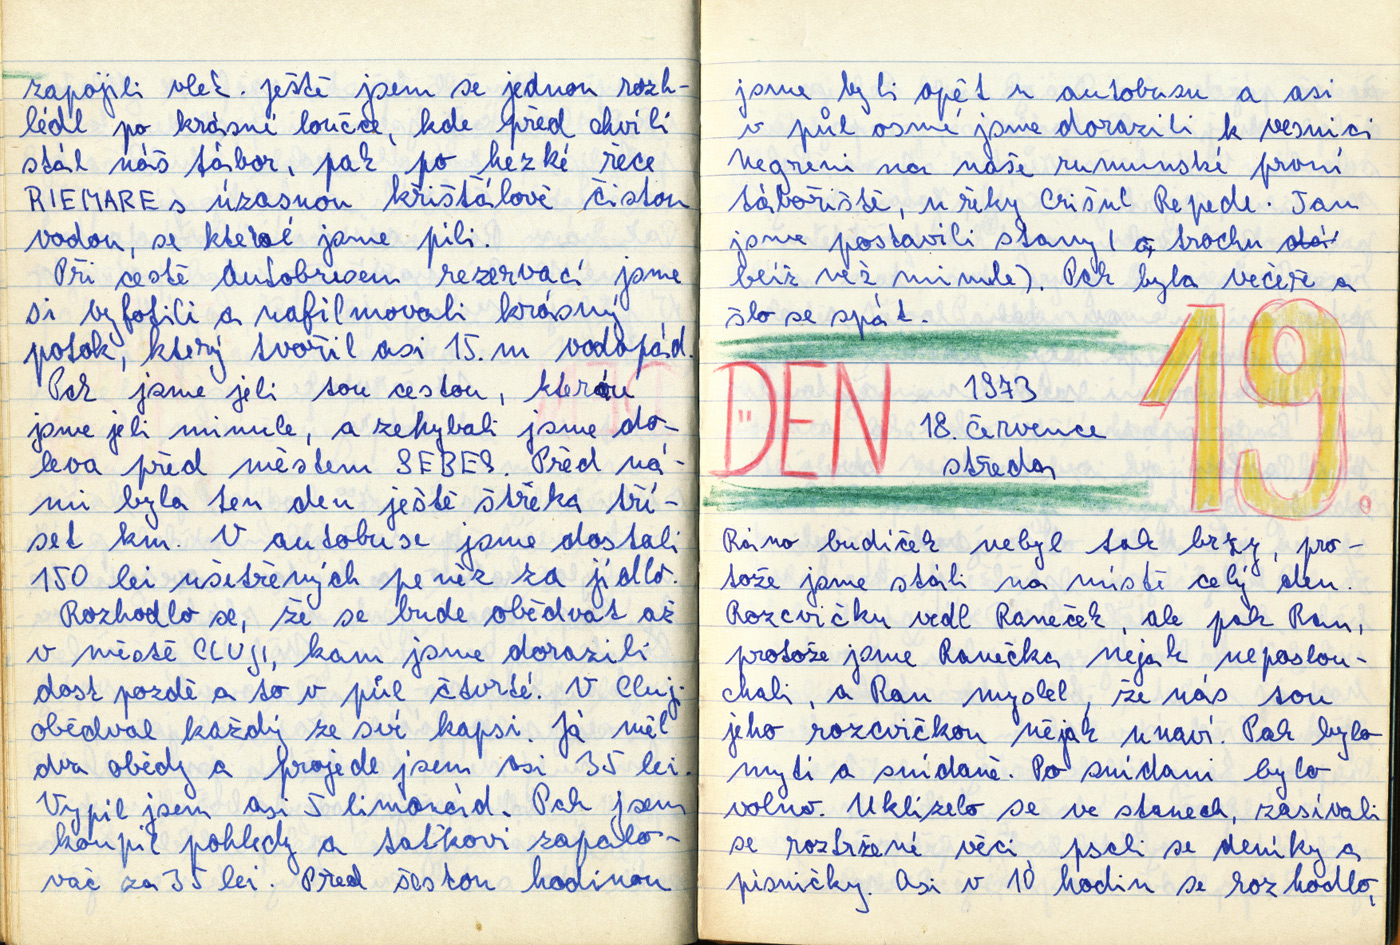 zapojili vleč. Ještě jsem se jednou rozh-
lédl po krásné loučce, kde před chvílí
stál náš tábor, pak po hezké řece
RIEMARE s úžasnou křišťálově čistou
vodou, se které jsme pili.
Při cestě autobusem rezervací jsme
si vyfotili a nafilmovali krásný
potok, který tvořil asi 15. m vodopád.
Pak jsme jeli tou cestou, kterou
jsme jeli minule, a zahybali jsme do-
leva před městem SEBEŠ. Před ná-
mi byla ten den ještě štreka tři-
set km. V autobuse jsme dostali
150 lei ušetřených peněz za jídlo.
Rozhodlo se, že se bude obědvat až
v městě CLUJI, kam jsme dorazili
dost pozdě a to v půl čtvrté. V Cluj.
obědval každý ze své kapsi. Já měl
dva obědy a projede jsem asi 35 lei.
Vypil jsem asi 5 limonád. Pak jsem
koupil pohledy a taťkovi zapalo-
vač za 35 lei. Před šestou hodinou
jsme byli opět u autobusu a asi
v půl osmé jsme dorazili k vesnici
Negreni na naše rumunské první
tábořiště, u řeky Crišul Repede. Tam
jsme postavili stany (a trochu dál
blíž než minule). Pak byla večeře a
šlo se spát.
DEN 19.
1973
18. července
středa
Ráno budíček nebyl tak brzy, pro-
tože jsme stáli na místě celý den.
Rozcvičku vedl Raneček, ale pak Ran,
protože jsme Ranečka nějak neposlou-
chali, a Ran myslel, že nás tou
jeho rozcvičkou nějak unaví. Pak bylo
mytí a snídaně. Po snídani bylo
volno. Uklízelo se ve stanech, zašívali
se roztržené věci, psali se deníky a
písničky. Asi v 10 hodin se rozhodlo,